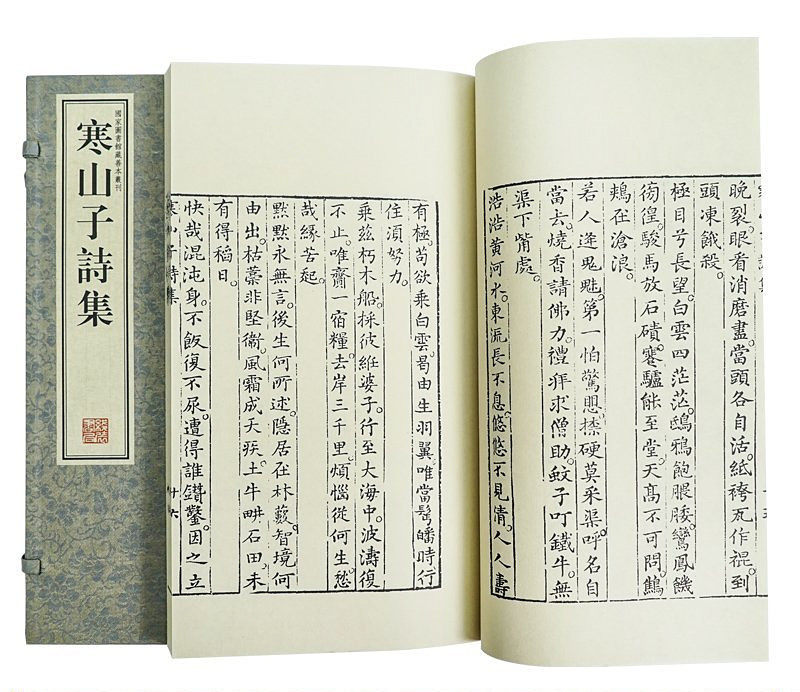 國家圖書館藏善本叢刊
寒山子詩集
晚裂。眼看消磨盡。當頭各自活。紙袴瓦作裩。到
頭凍餓殺。
極目兮長望。白雲四茫茫。鴟鴉飽腲腇。鸞鳳饑
徬徨。駿馬放石磧。蹇驢能至堂。天高不可問。鷦
在滄浪。
若人逢鬼魅。第一怕驚懅。捺硬莫采渠。呼名自
當去。燒香請佛力。禮拜求僧助。蚊子叮鐵牛。無
渠下觜處。
浩浩黃河水。東流長不息。悠悠不見清。人人壽
有極。苟欲乘白雲。曷由生羽翼。唯當鬢皤時。行
住須努力。
乘茲朽木船。採彼紝婆子。行至大海中。波濤復
不止。唯齎一宿糧。去岸三千里。煩惱從何生。愁
哉緣苦起。
默默永無言。後生何所述。隱居在林藪。智境何
由出。枯槁非堅衛。風霜成夭疾。土牛耕石田。未
有得稻日。
快哉混沌身。不飯復不尿。遭得誰鑽鑿。因之立
寒山子詩集